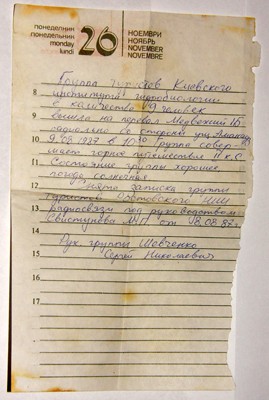 понеделник
понедельник
monday
lundi
26
НОЕМВРИ
НОЯБРЬ
NOVEMBER
NOVEMBRE
Группа Киевского
8 института гидробиологии
в количестве 19 человек
9 вышла на перевал Медвежий 1Б
со стороны
10 9.08.1987 в 10 30 Группа совер-
шает горное путешествие II к.с.
11 Состояние группы хорошее
погода солнечная.
12 Снята записка группы
туристов НИИ
13 Радиосвязи под руководством
Свистунова от 18.08.87г.
14
Рук. группы Шевченко
15 Сергей Николаевич
16
17